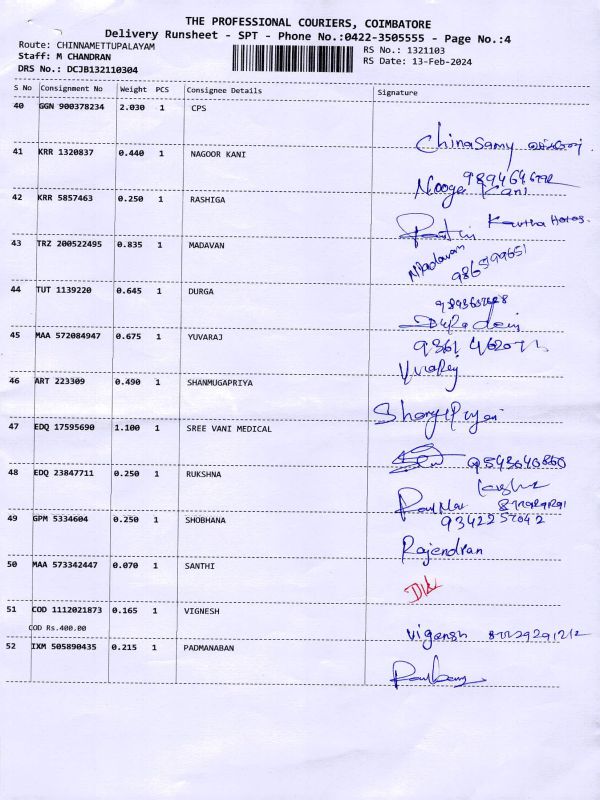 THE PROFESSIONAL COURIERS, COIMBATORE
Delivery Runsheet - SPT - Phone No.:0422-3505555 - Page No.:4
Route: CHINNAMETTUPALAYAM
Staff: M CHANDRAN
DRS No.: DCJB132110304
RS No.: 1321103
RS Date: 13-Feb-2024
S No Consignment No Weight PCS Consignee Details Signature
40 GGN 900378234 2.030 1 CPS
Chinasamy
41 KRR 1320837 0.440 1 NAGOOR KANI
42 KRR 5857463 0.250 1 RASHIGA
43 TRZ 200522495 0.835 1 MADAVAN
Madavan
44 TUT 1139220 0.645 1 DURGA
45 MAA 572084947 0.675 1 YUVARAJ
46 ART 223309 0.490 1 SHANMUGAPRIYA
47 EDQ 17595690 1.100 1 SREE VANI MEDICAL
48 EDQ 23847711 0.250 1 RUKSHNA
49 GPM 5334604 0.250 1 SHOBHANA
Rajendran
50 MAA 573342447 0.070 1 SANTHI
51 COD 1112021873 0.165 1 VIGNESH
COD Rs.400.00
52 IXM 505890435 0.215 1 PADMANABAN